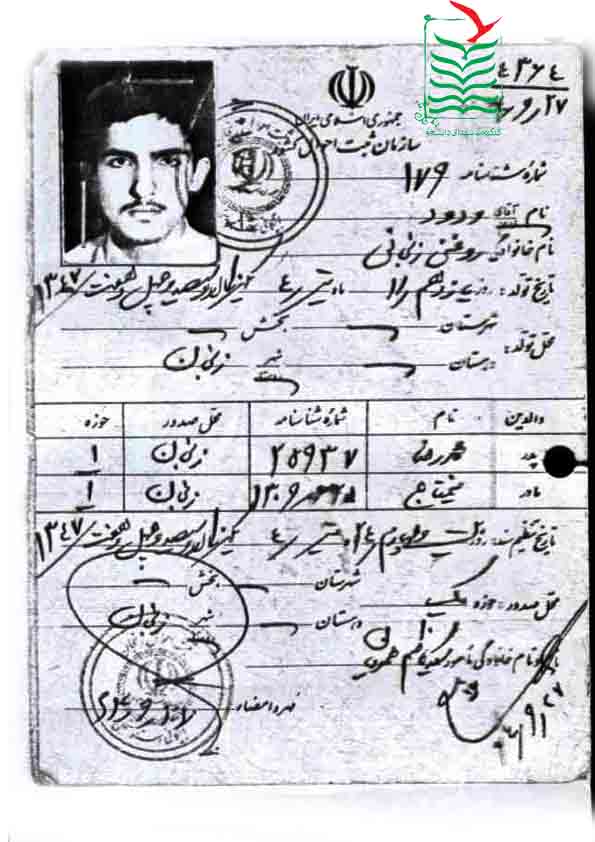 کنگره شهدای دانشجو
٤٣٦٤
جمهوری اسلامی ایران
سازمان ثبت احوال کشور
شمارهٔ شناسنامه ۱۷۹
نام آقای ودود
نام خانوادگی روغنی زنجانی
تاریخ تولد: روز یازدهم ۱۱ ماه تیر ٤ یکهزار و سیصد و چهل و هفت ۱۳٤۷
محل تولد: شهرستان بخش
دهستان شهر زنجان
والدین نام شمارهٔ شناسنامه محل صدور حوزه
پدر محمدرضا ۲۵۹۳۷ زنجان ۱
مادر زنجان ۱
تاریخ تنظیم سند: روز بیست و چهارم ۲٤ ماه تیر ٤ یکهزار و سیصد و چهل و هفت ۱۳٤۷
محل صدور: حوزه یک شهرستان بخش
دهستان شهر زنجان
نام و نام خانوادگی مامور
مهر و امضاء